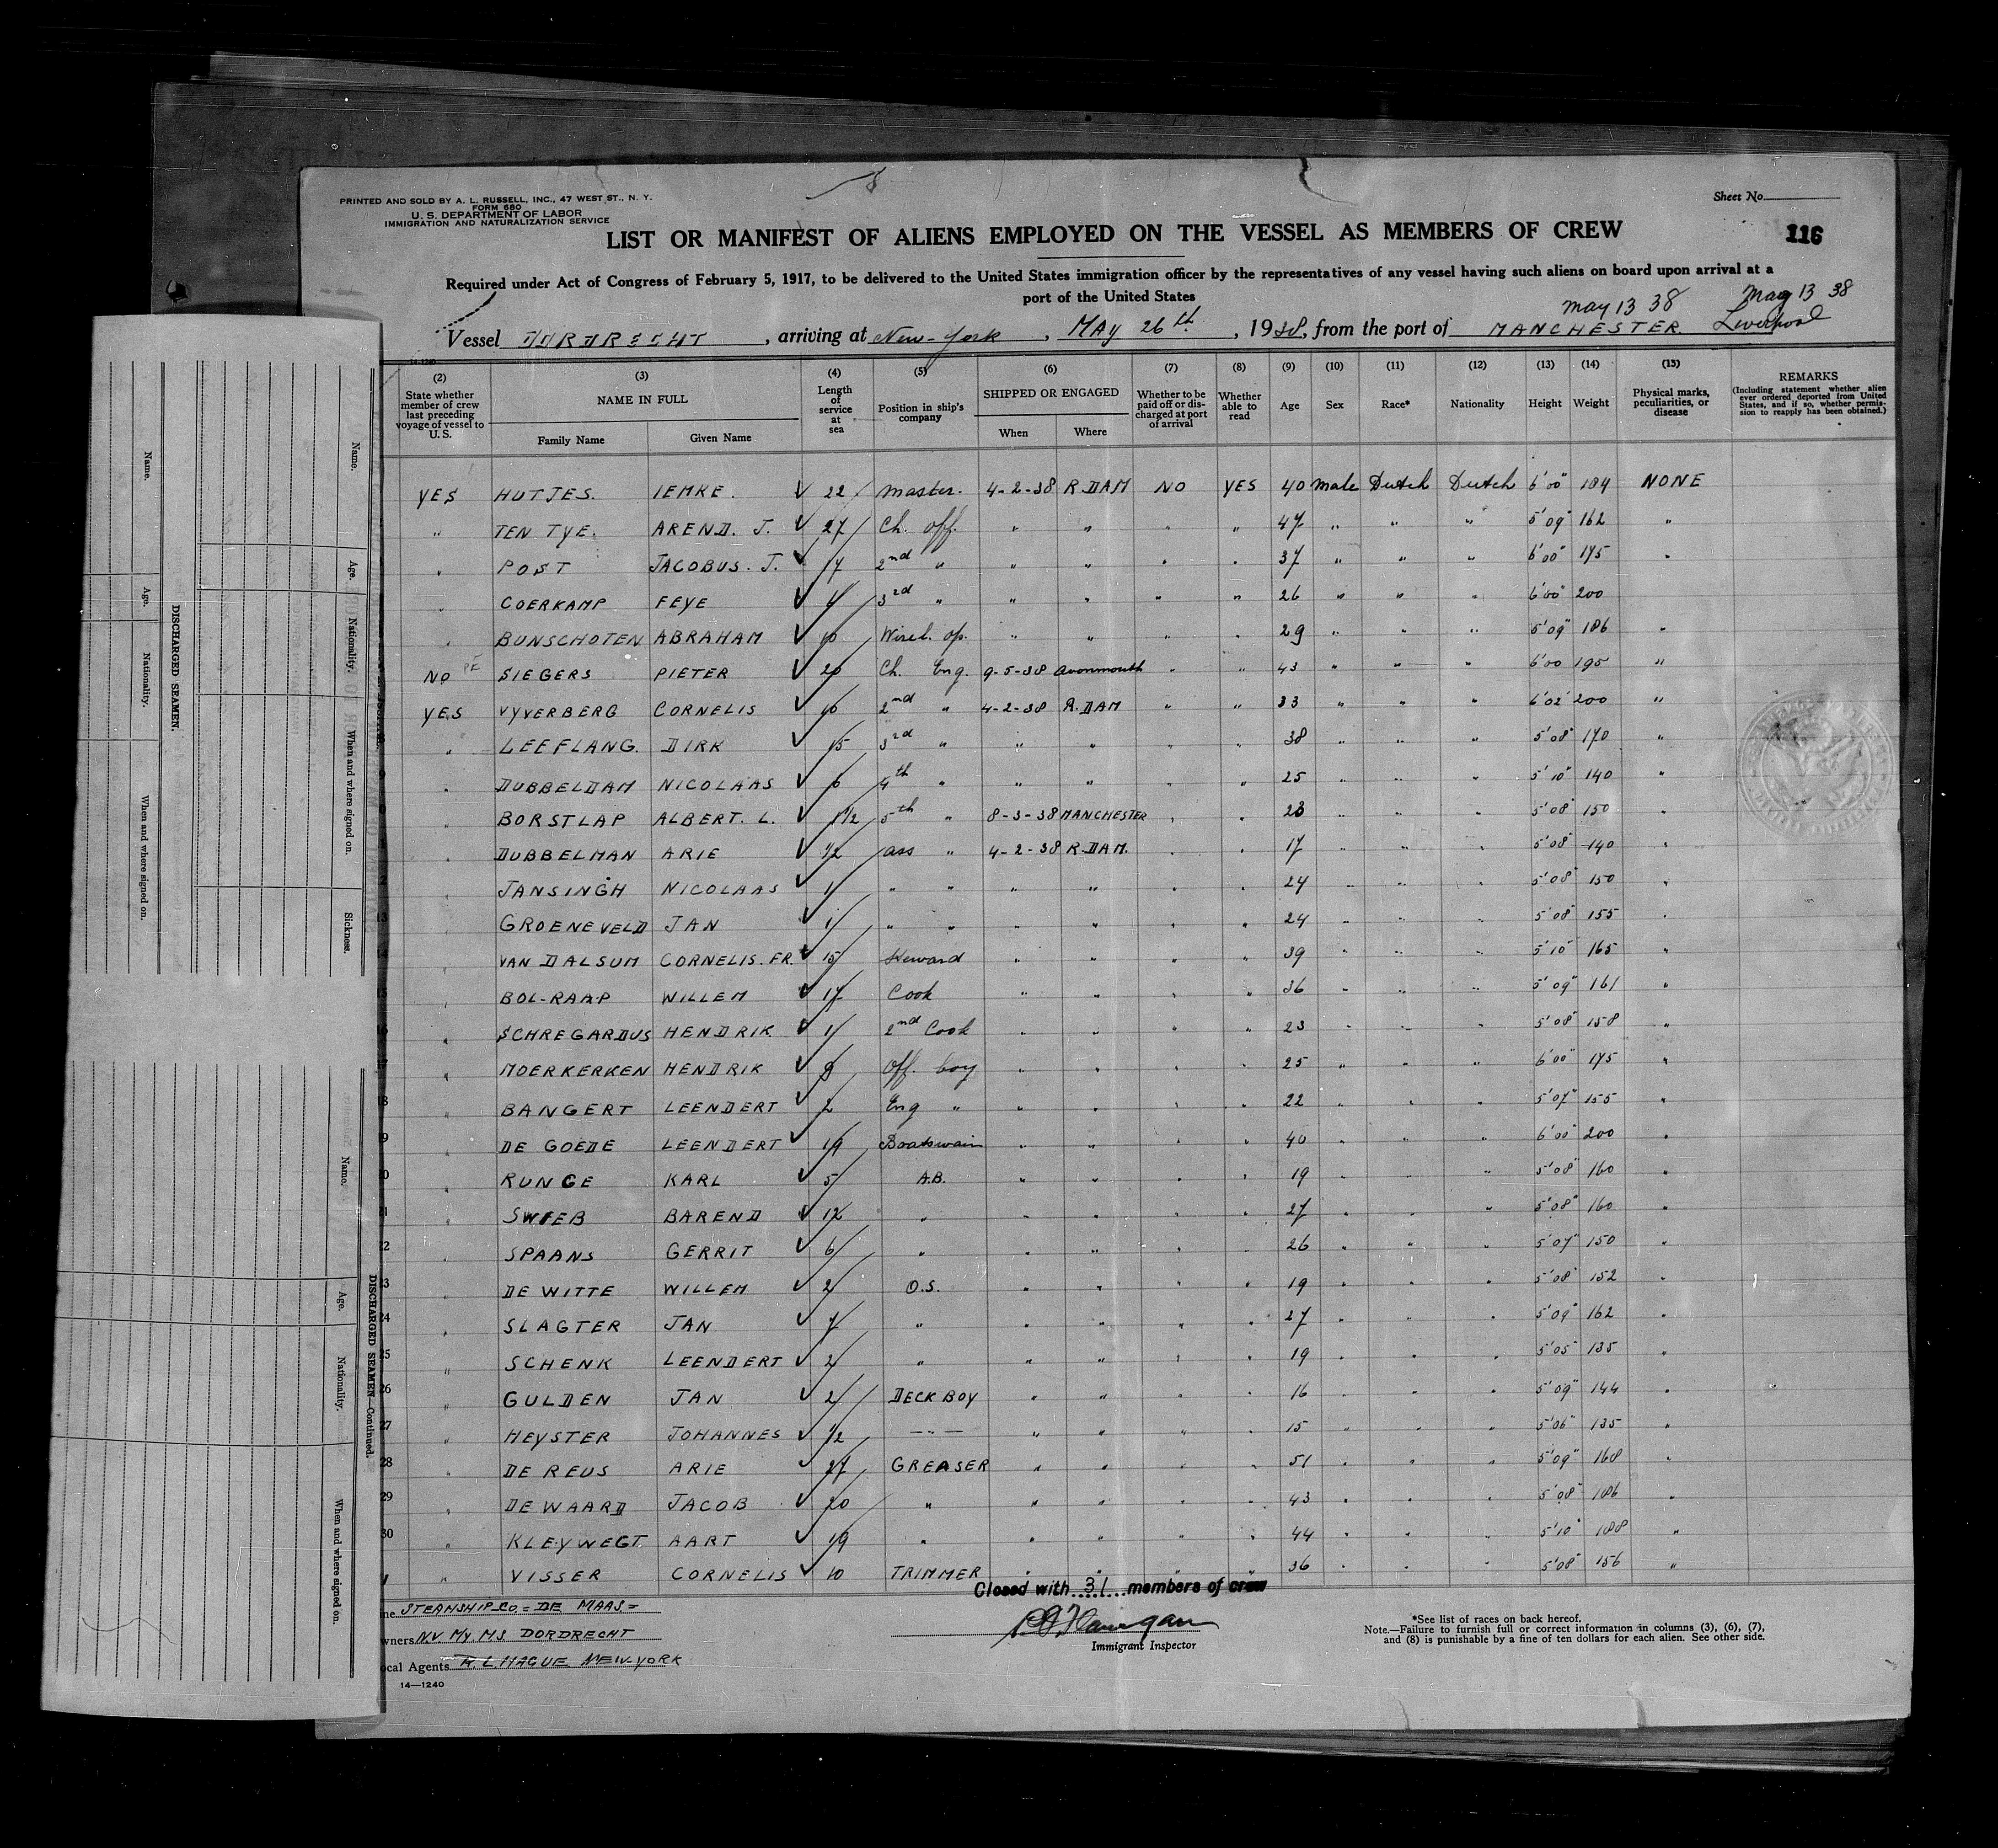 PRINTED AND SOLD BY A. L. RUSSELL, INC., 47 WEST ST., N. Y.
FORM 680
U. S. DEPARTMENT OF LABOR
IMMIGRATION AND NATURALIZATION SERVICE
Sheet No.
LIST OR MANIFEST OF ALIENS EMPLOYED ON THE VESSEL AS MEMBERS OF CREW
116
Required under Act of Congress of February 5, 1917, to be delivered to the United States immigration officer by the representatives of any vessel having such aliens on board upon arrival at a
port of the United States
may 13 38 May 13 38
Vessel DORDRECHT, arriving at New-York, MAY 26th, 1938, from the port of MANCHESTER. Liverpool
14-1240
(2) (3) (4) (5) (6) (7) (8) (9) (10) (11) (12) (13) (14) (15)
State whether member of crew last preceding voyage of vessel to U. S.
NAME IN FULL
Family Name Given Name
Length of service at sea
Position in ship's company
SHIPPED OR ENGAGED
When Where
Whether to be paid off or discharged at port of arrival
Whether able to read
Age Sex Race* Nationality Height Weight
Physical marks, peculiarities, or disease
REMARKS
(Including statement whether alien ever ordered deported from United States, and if so, whether permission to reapply has been obtained.)
YES HUTJES. IEMKE. √ 22 master. 4-2-38 R.DAM NO YES 40 male Dutch Dutch 6'00" 184 NONE
" TEN TYE. AREND. J. √ 27 Ch. off. " " " " 47 " " " 5'09" 162 "
" POST JACOBUS. J. √ 17 2nd " " " " " 37 " " " 6'00" 175 "
" COERKAMP FEYE √ 3rd " " " " " 26 " " " 6'00" 200
" BUNSCHOTEN ABRAHAM √ 10 Wirel. op. " " " " 29 " " " 5'09" 186 "
NO PE SIEGERS PIETER √ 20 Ch. Eng. 9-5-38 Avonmouth " " 43 " " " 6'00 195 "
YES VYVERBERG CORNELIS √ 10 2nd " 4-2-38 R.DAM " " 33 " " " 6'02" 200 "
" LEEFLANG. DIRK √ 15 3rd " " " " " 38 " " " 5'08" 170 "
9 " DUBBELDAM NICOLAAS √ 6 4th " " " " " 25 " " " 5'10" 140 "
0 " BORSTLAP ALBERT. L. √ 1½ 5th " 8-3-38 MANCHESTER " " 23 " " " 5'08" 150 "
" DUBBELMAN ARIE √ ½ ass " 4-2-38 R.DAM. " " 17 " " " 5'08" 140 "
2 " JANSINGH NICOLAAS √ 1 " " " " " " 24 " " " 5'08" 150 "
13 " GROENEVELD JAN √ 1 " " " " " " 24 " " " 5'08" 155 "
14 " VAN DALSUM CORNELIS. FR. √ 15 Steward " " " " 39 " " " 5'10" 165 "
15 " BOL-RAAP WILLEM √ 17 Cook " " " " 36 " " " 5'09" 161 "
16 " SCHREGARDUS HENDRIK √ 1 2nd Cook " " " " 23 " " " 5'08" 158 "
17 " MOERKERKEN HENDRIK √ Off. boy " " " " 25 " " " 6'00" 175 "
18 " BANGERT LEENDERT √ 2 Eng " " " " " 22 " " " 5'07" 155 "
19 " DE GOEDE LEENDERT √ 19 Boatswain " " " " 40 " " " 6'00" 200 "
20 " RUNGE KARL √ 5 A.B. " " " " 19 " " " 5'08" 160 "
21 " SWIEB BAREND √ 12 " " " " " 27 " " " 5'08" 160 "
22 " SPAANS GERRIT √ 6 " " " " " 26 " " " 5'07" 150 "
23 " DE WITTE WILLEM √ 2 O.S. " " " " 19 " " " 5'08" 152 "
24 " SLAGTER JAN √ " " " " " 27 " " " 5'09" 162 "
25 " SCHENK LEENDERT √ 2 " " " " " 19 " " " 5'05" 135 "
26 " GULDEN JAN √ 2 DECK BOY " " " " 16 " " " 5'09" 144 "
27 " HEYSTER JOHANNES √ ½ —"— " " " " 15 " " " 5'06" 135 "
28 " DE REUS ARIE √ 27 GREASER " " " " 51 " " " 5'09" 168 "
29 " DE WAARD JACOB √ 20 " " " " " 43 " " " 5'08" 186 "
30 " KLEYWEGT. AART √ 19 " " " " " 44 " " " 5'10" 188 "
" VISSER CORNELIS √ 10 TRIMMER " " " " 36 " " " 5'08" 156 "
Closed with 31 members of crew
ine STEAMSHIP Co = DE MAAS =
wners N.V. My MS DORDRECHT
ocal Agents NEW-YORK
14—1240
Immigrant Inspector
*See list of races on back hereof.
Note.—Failure to furnish full or correct information in columns (3), (6), (7),
and (8) is punishable by a fine of ten dollars for each alien. See other side.
DISCHARGED SEAMEN.
Name. Age. Nationality. When and where signed on.
Name. Age. Nationality. When and where signed on. Sickness.
DISCHARGED SEAMEN—Continued.
Name. Age. Nationality. When and where signed on.